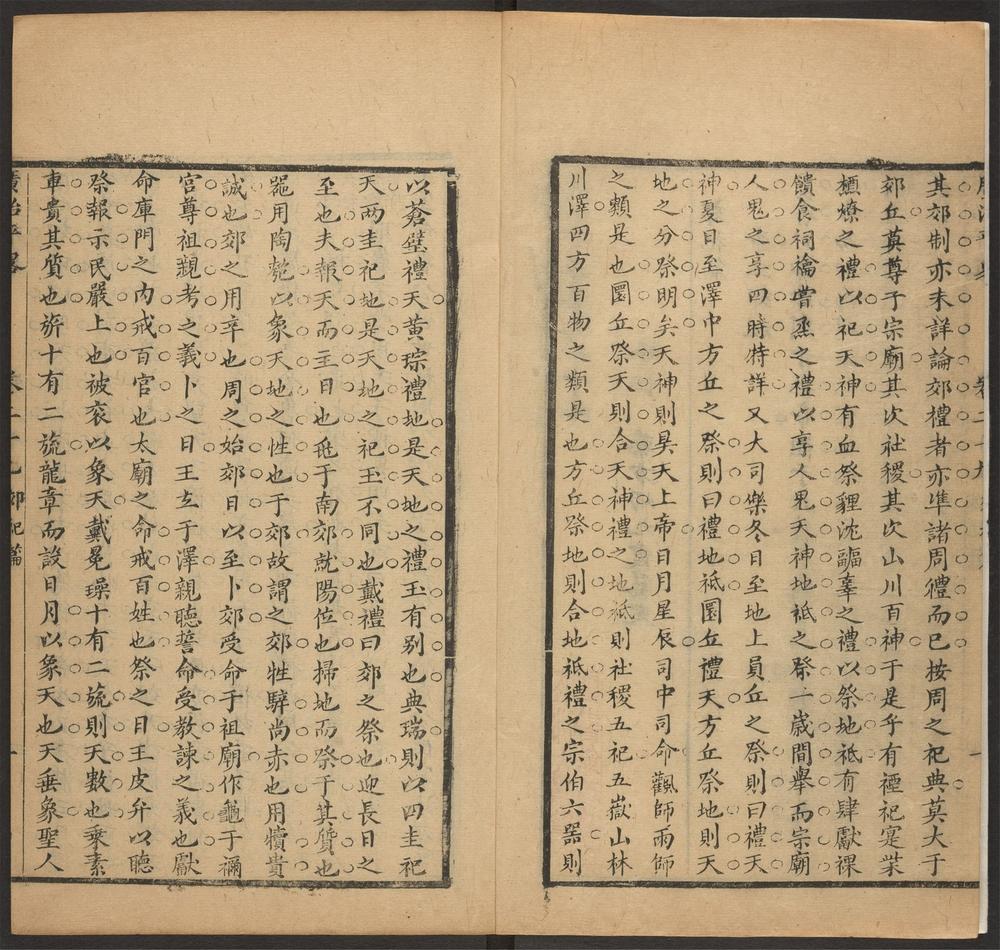 其郊制亦未詳論郊禮者亦準諸周禮而已按周之祀典莫大于
郊丘莫尊于宗廟其次社稷其次山川百神于是乎有禋祀寔柴
槱燎之禮以祀天神有血祭貍沈疈辜之禮以祭地祗有肆獻祼
饋食祠禴嘗烝之禮以享人鬼天神地祗之祭一歲間舉而宗廟
人鬼之享四時特詳又大司樂冬日至地上員丘之祭則曰禮天
神夏日至澤中方丘之祭則曰禮地祗圜丘禮天方丘祭地則天
地之分祭明矣天神則昊天上帝日月星辰司中司命觀師雨師
之類是也圜丘祭天則合天神禮之地祗則社稷五祀五嶽山林
川澤四方百物之類是也方丘祭地則合地祗禮之宗伯六器則
以蒼璧禮天黃琮禮地是天地之禮玉有别也典瑞則以四圭祀
天两圭祀地是天地之祀玉不同也戴禮曰郊之祭也迎長日之
至也夫報天而主日也兆于南郊就陽位也掃地而祭于其質也
噐用陶匏以象天地之性也于郊故謂之郊牲騂尚赤也用犢貴
誠也郊之用辛也周之始郊日以至卜郊受命于祖廟作龜于禰
宫尊祖親考之義卜之日王立于澤親聴誓命受教諫之義也獻
命庫門之内戒百官也太廟之命戒百姓也祭之日王皮弁以聴
祭報示民嚴上也被衮以象天戴冕璪十有二旒則天數也乗素
車貴其質也旂十有二旒龍章而設日月以象天也天垂象聖人
廣治平畧 卷二十九 郊祀篇 一